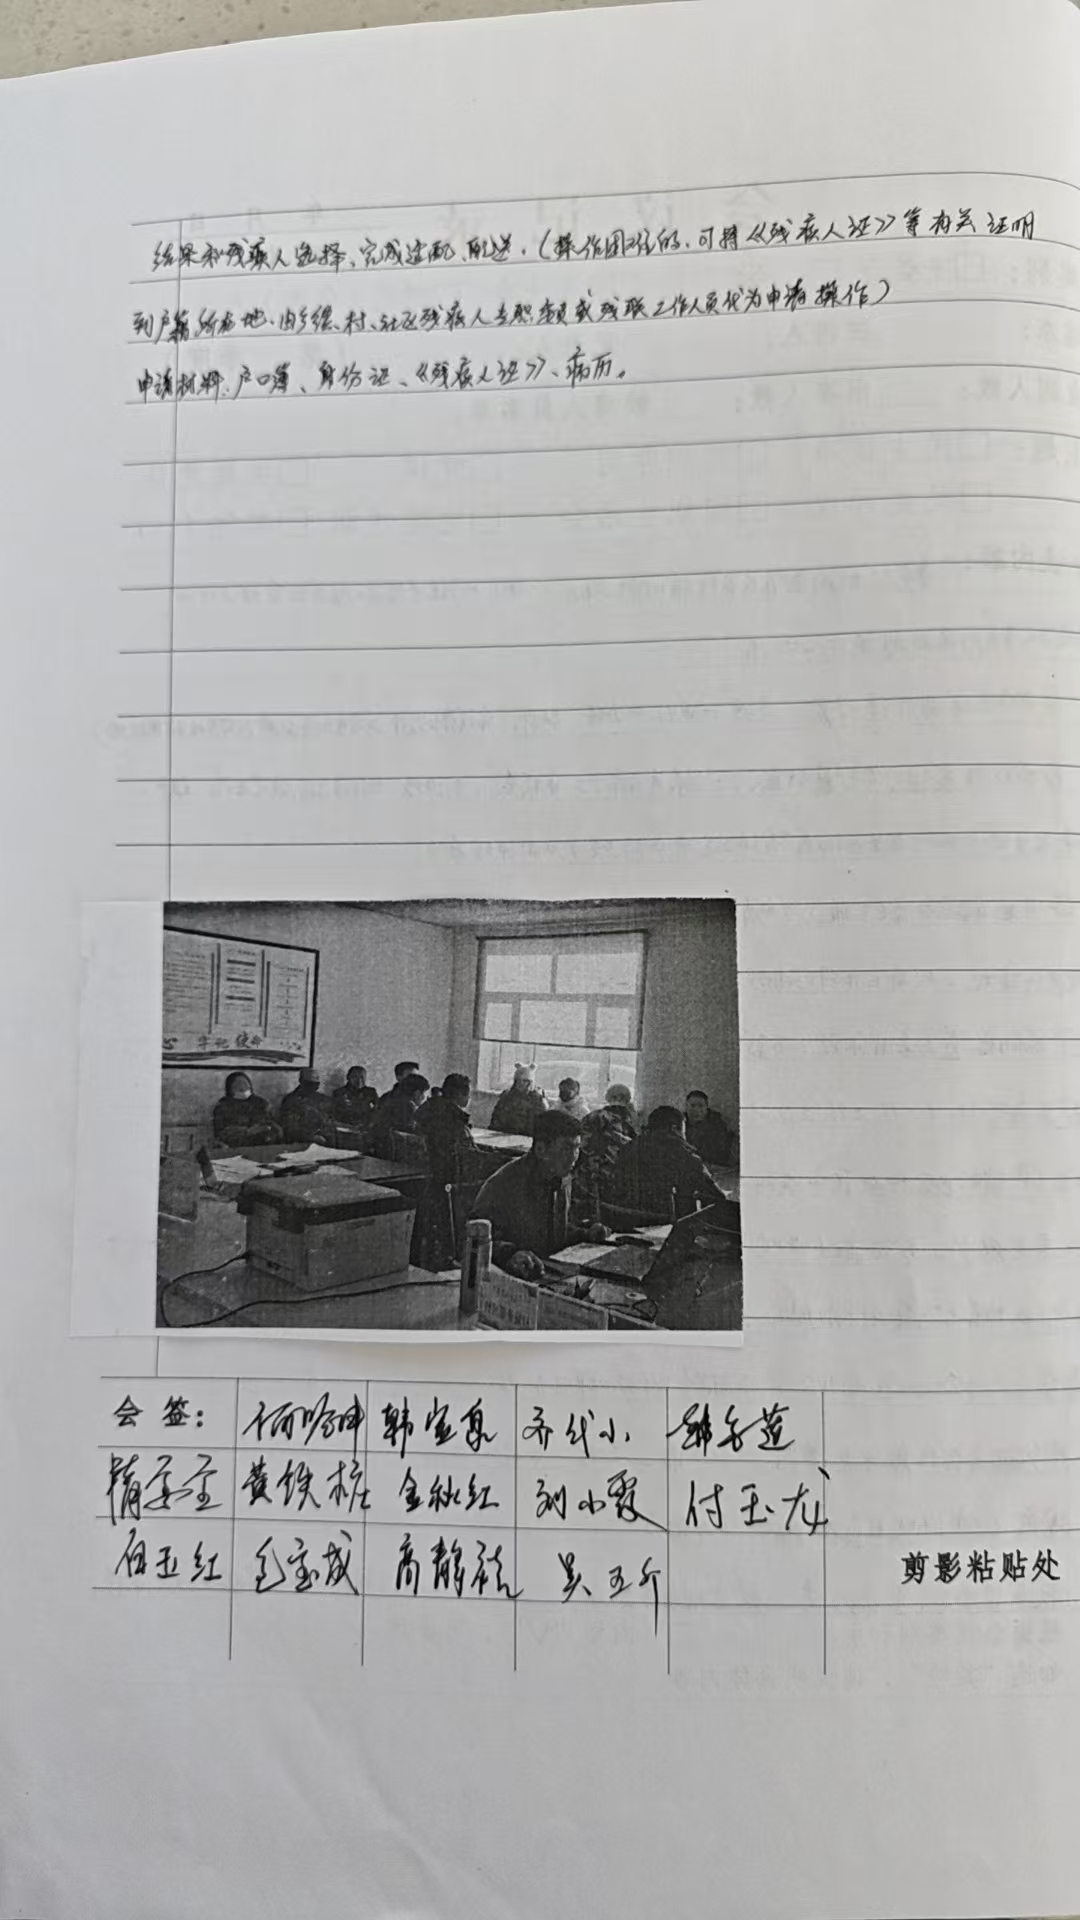 结果和残疾人选择、完成适配、配送。(操作困难的、可持《残疾人证》等有关证明
到户籍所在地、由乡镇、村、社区残疾人专职委员或残联工作人员代为申请操作)
申请材料:户口簿、身份证、《残疾人证》、病历。
牢记使命
会 签: 韩宝泉 齐代小
黄铁柱 金秋红 刘小霞 付玉龙
白玉红 包宝成 高静 吴五斤
剪影粘贴处